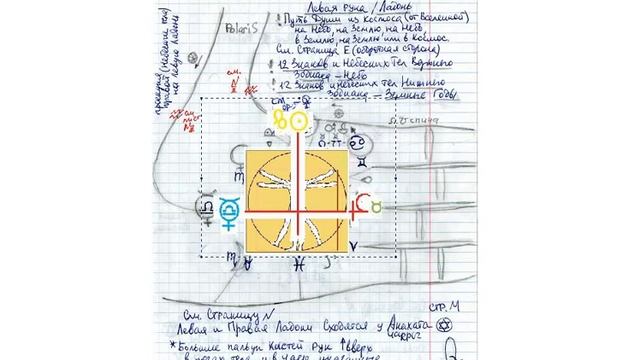 Левая рука / Ладонь
! Путь Души из Космоса (от Вселенной)
на Небо, на Землю, на Небо
в Землю, на Землю или в Космос.
См. Страница Е (оборотная сторона)
! 12 Знаков и Небесных Тел Верхнего
Зодиака – Небо
! 12 Знаков и небесных тел Нижнего
Зодиака – Земные Годы
Polaris
проекция (Небесные тела)
правой
на левую ладонь
см.
см.
спина
См. Страницу N
стр. М
Левая и Правая Ладони Сходятся у Анахата
чакры
* Большие пальцы Кистей Рук ↑ вверх